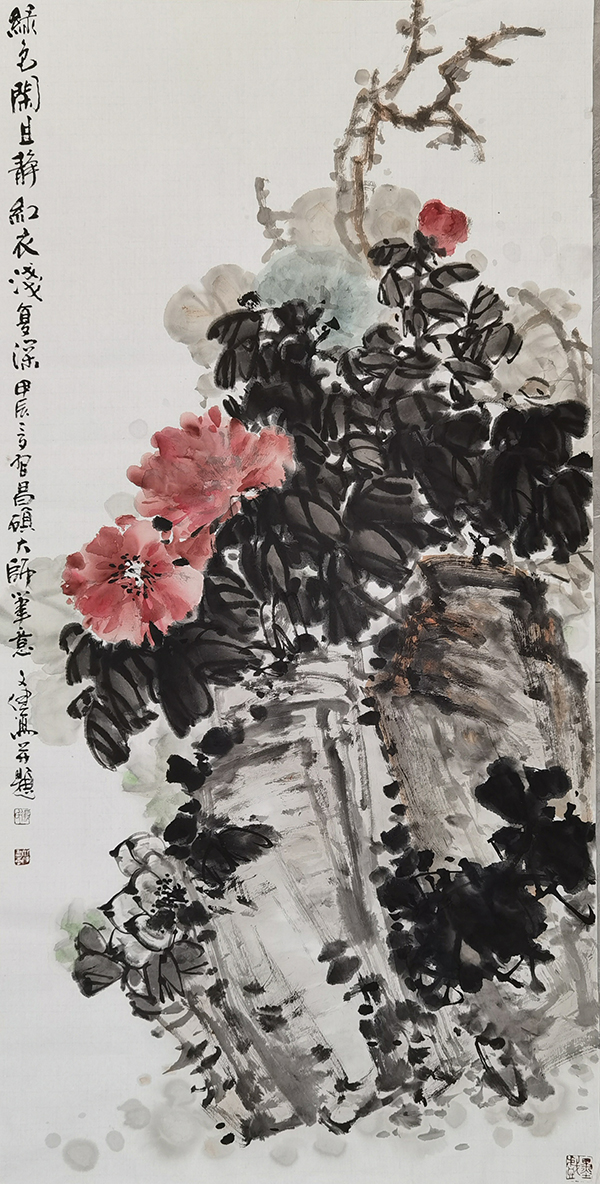 綠色閑且靜紅衣淺复深甲辰之秋習昌碩大師筆意文健画并題